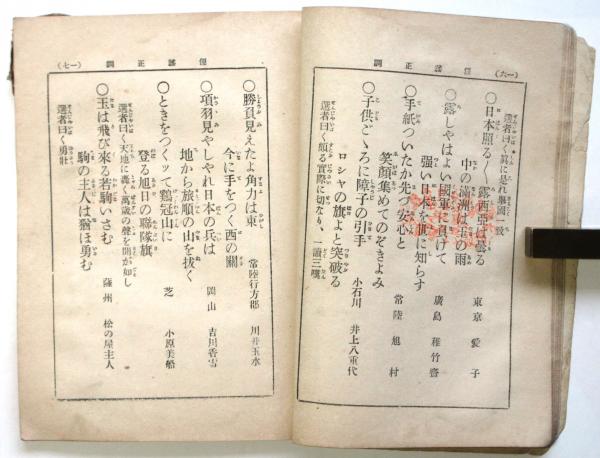 (一六) 俚謠正調
○日本照る〱 露西亞は曇る
中の滿洲は玉の雨
東京 愛子
選者曰く眞に是れ擧國一致
○露しやはよい國軍に負けて
强い日本を世に知らす
廣島 稚竹齋
○手紙ついたか先づ安心と
笑顏集めてのぞきよみ
常陸 旭村
○子供ごゝろに障子の引手
ロシヤの旗よと突破る
小石川 井上八重代
選者曰く頗る實際に切なり、一讀三嘆
(一七) 俚謠正調
○勝負見えたよ角力は東
今に手をつく西の關
常陸行方郡 川井玉水
○項羽見やしやれ日本の兵は
地から旅順の山を拔く
岡山 吉川香雪
○ときをつくツて鷄冠山に
登る旭日の聯隊旗
芝 小原美船
選者曰く天地に轟く萬歲の聲を聞が如し
○玉は飛び來る若駒いさむ
駒の主人は猶ほ勇む
薩州 松の屋主人
選者曰く勇壯